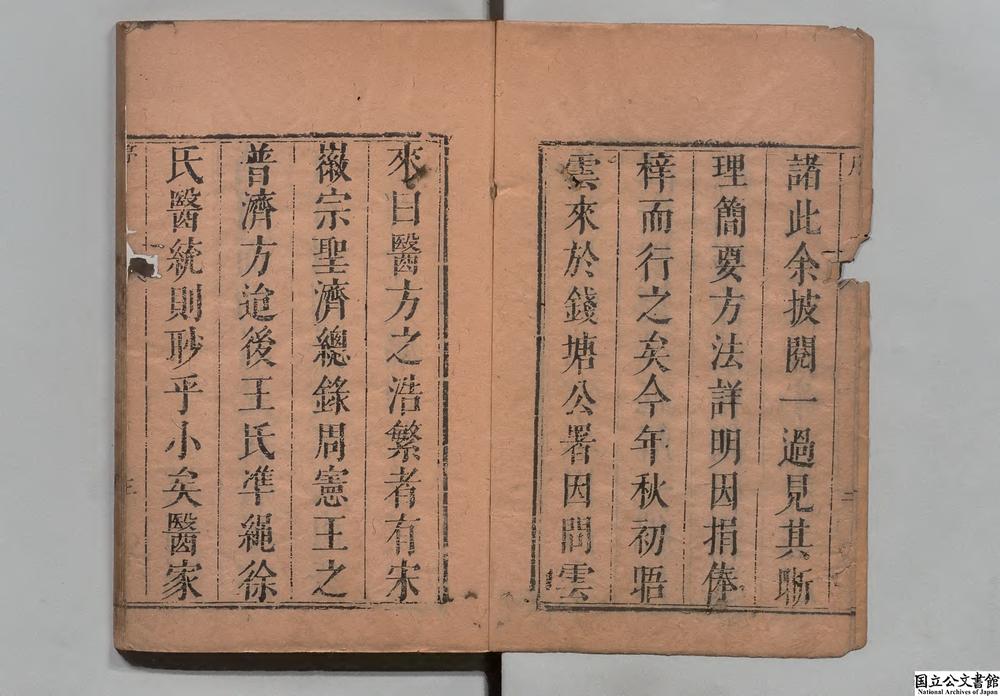 諸此余披閱一過見其晰
理簡要方法詳明因捐俸
梓而行之矣今年秋初晤
雲來於錢塘公署因問雲
來曰醫方之浩繁者有宋
徽宗聖濟總錄周憲王之
普濟方迨後王氏準繩徐
氏醫統則眇乎小矣醫家
国立公文書館
National Archives of Japan